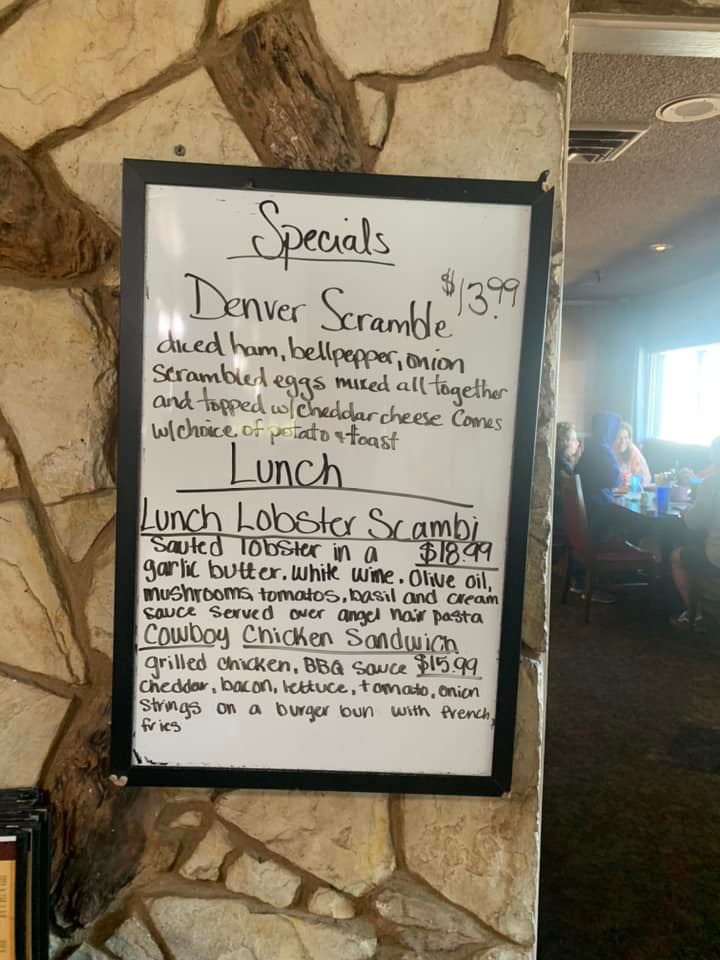 Specials
$13.99
Denver Scramble
diced ham, bellpepper, onion
scrambled eggs mixed all together
and topped w/cheddar cheese Comes
w/choice of potato & toast
Lunch
Lunch Lobster Scambi
Sauted lobster in a $18.99
garlic butter. white wine. Olive oil,
mushrooms, tomatos, basil and cream
sauce served over angel hair pasta
Cowboy Chicken Sandwich
grilled chicken, BBQ sauce $15.99
cheddar, bacon, lettuce, tomato, onion
strings on a burger bun with french
fries